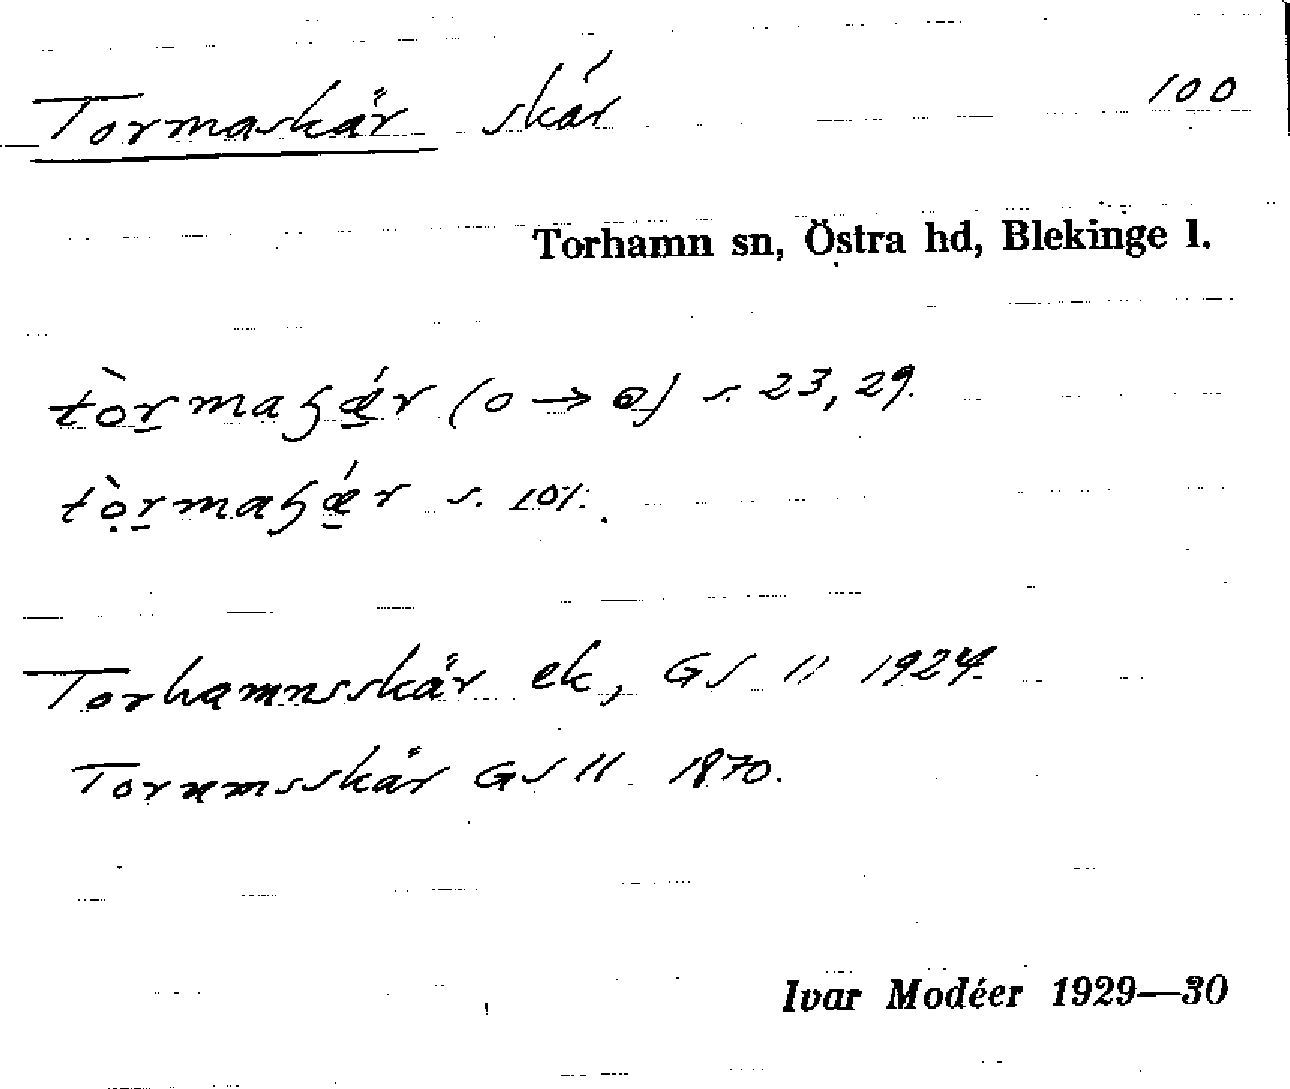 Tormaskär skär 100
Torhamn sn, Östra hd, Blekinge l.
tòrmaʂǽr (o → ɷ) s. 23, 29.
tọ̀rmaʂǽr s. 101.
Torhamnsskär ek, GS 11 1924.
Torumsskär GS 11 1870.
Ivar Modéer 1929—30